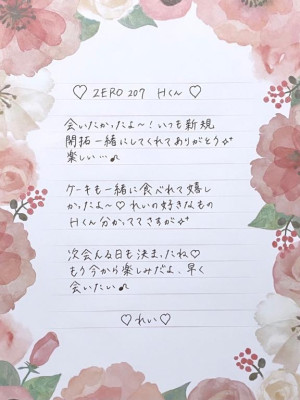 ♡ ZERO 207 Hくん ♡
会いたかったよ〜！いつも新規
開拓一緒にしてくれてありがとう✨
楽しい…♪
ケーキも一緒に食べれて嬉し
かったよ〜♡れいの好きなもの
Hくん分かっててさすが✨
次会える日も決まったね♡
もう今から楽しみだよ、早く
会いたい♪
♡れい♡